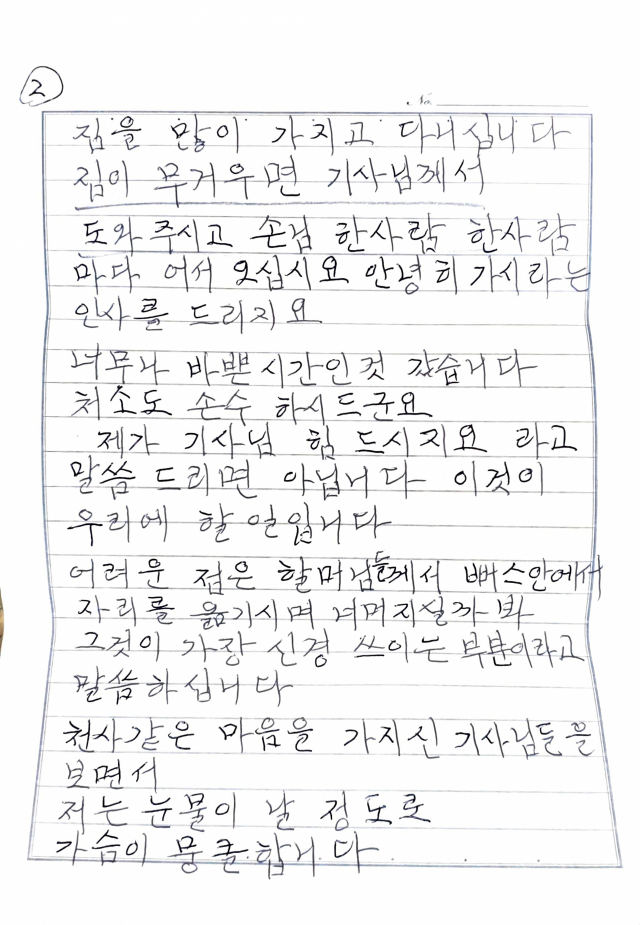 2
No.
짐을 많이 가지고 다니십니다
짐이 무거우면 기사님께서
도와주시고 손님 한사람 한사람
마다 어서 오십시요 안녕히 가시라는
인사를 드리지요
너무나 바쁜시간인것 같습니다
처소도 손수 하시드군요
제가 기사님 힘 드시지요 라고
말씀 드리면 아닙니다 이것이
우리에 할 일입니다
어려운 점은 할머님들께서 뻐스안에서
자리를 옮기시며 너머지실까봐
그것이 가장 신경 쓰이는 부분이라고
말씀하십니다
천사같은 마음을 가지신 기사님들을
보면서
저는 눈물이 날 정도로
가슴이 뭉클합니다